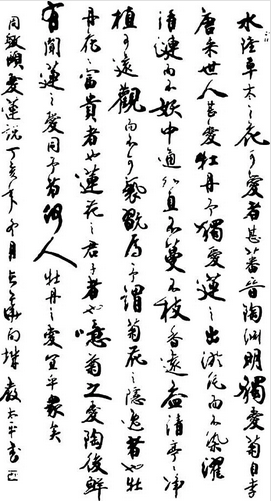 水陸草木之花可愛者甚蕃晉陶淵明獨愛菊自李
唐来世人甚愛牡丹予獨愛蓮之出淤泥而不染濯
清漣而不妖中通外直不蔓不枝香遠益清亭亭净
植可遠觀而不可褻翫焉予謂菊花之隱逸者也牡
丹花之富貴者也蓮花之君子者也噫菊之愛陶後鮮
有聞蓮之愛同予者何人牡丹之愛宜乎衆矣
周敦頤愛蓮說丁亥年